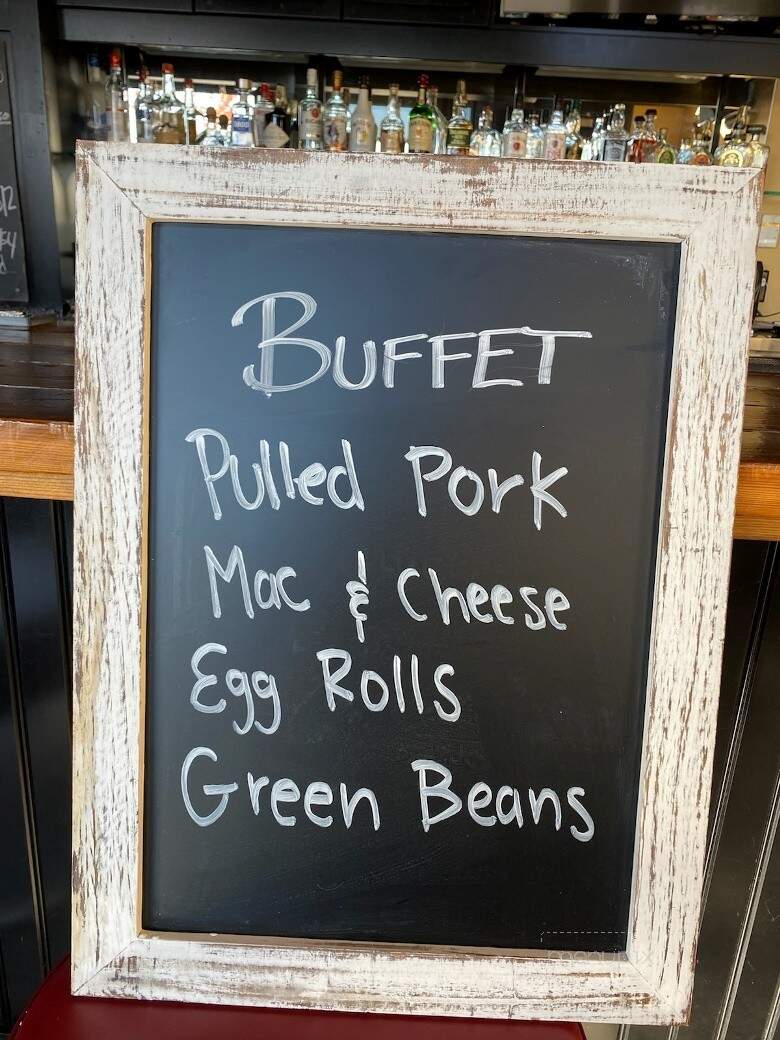 BUFFET
Pulled Pork
Mac & Cheese
Egg Rolls
Green Beans